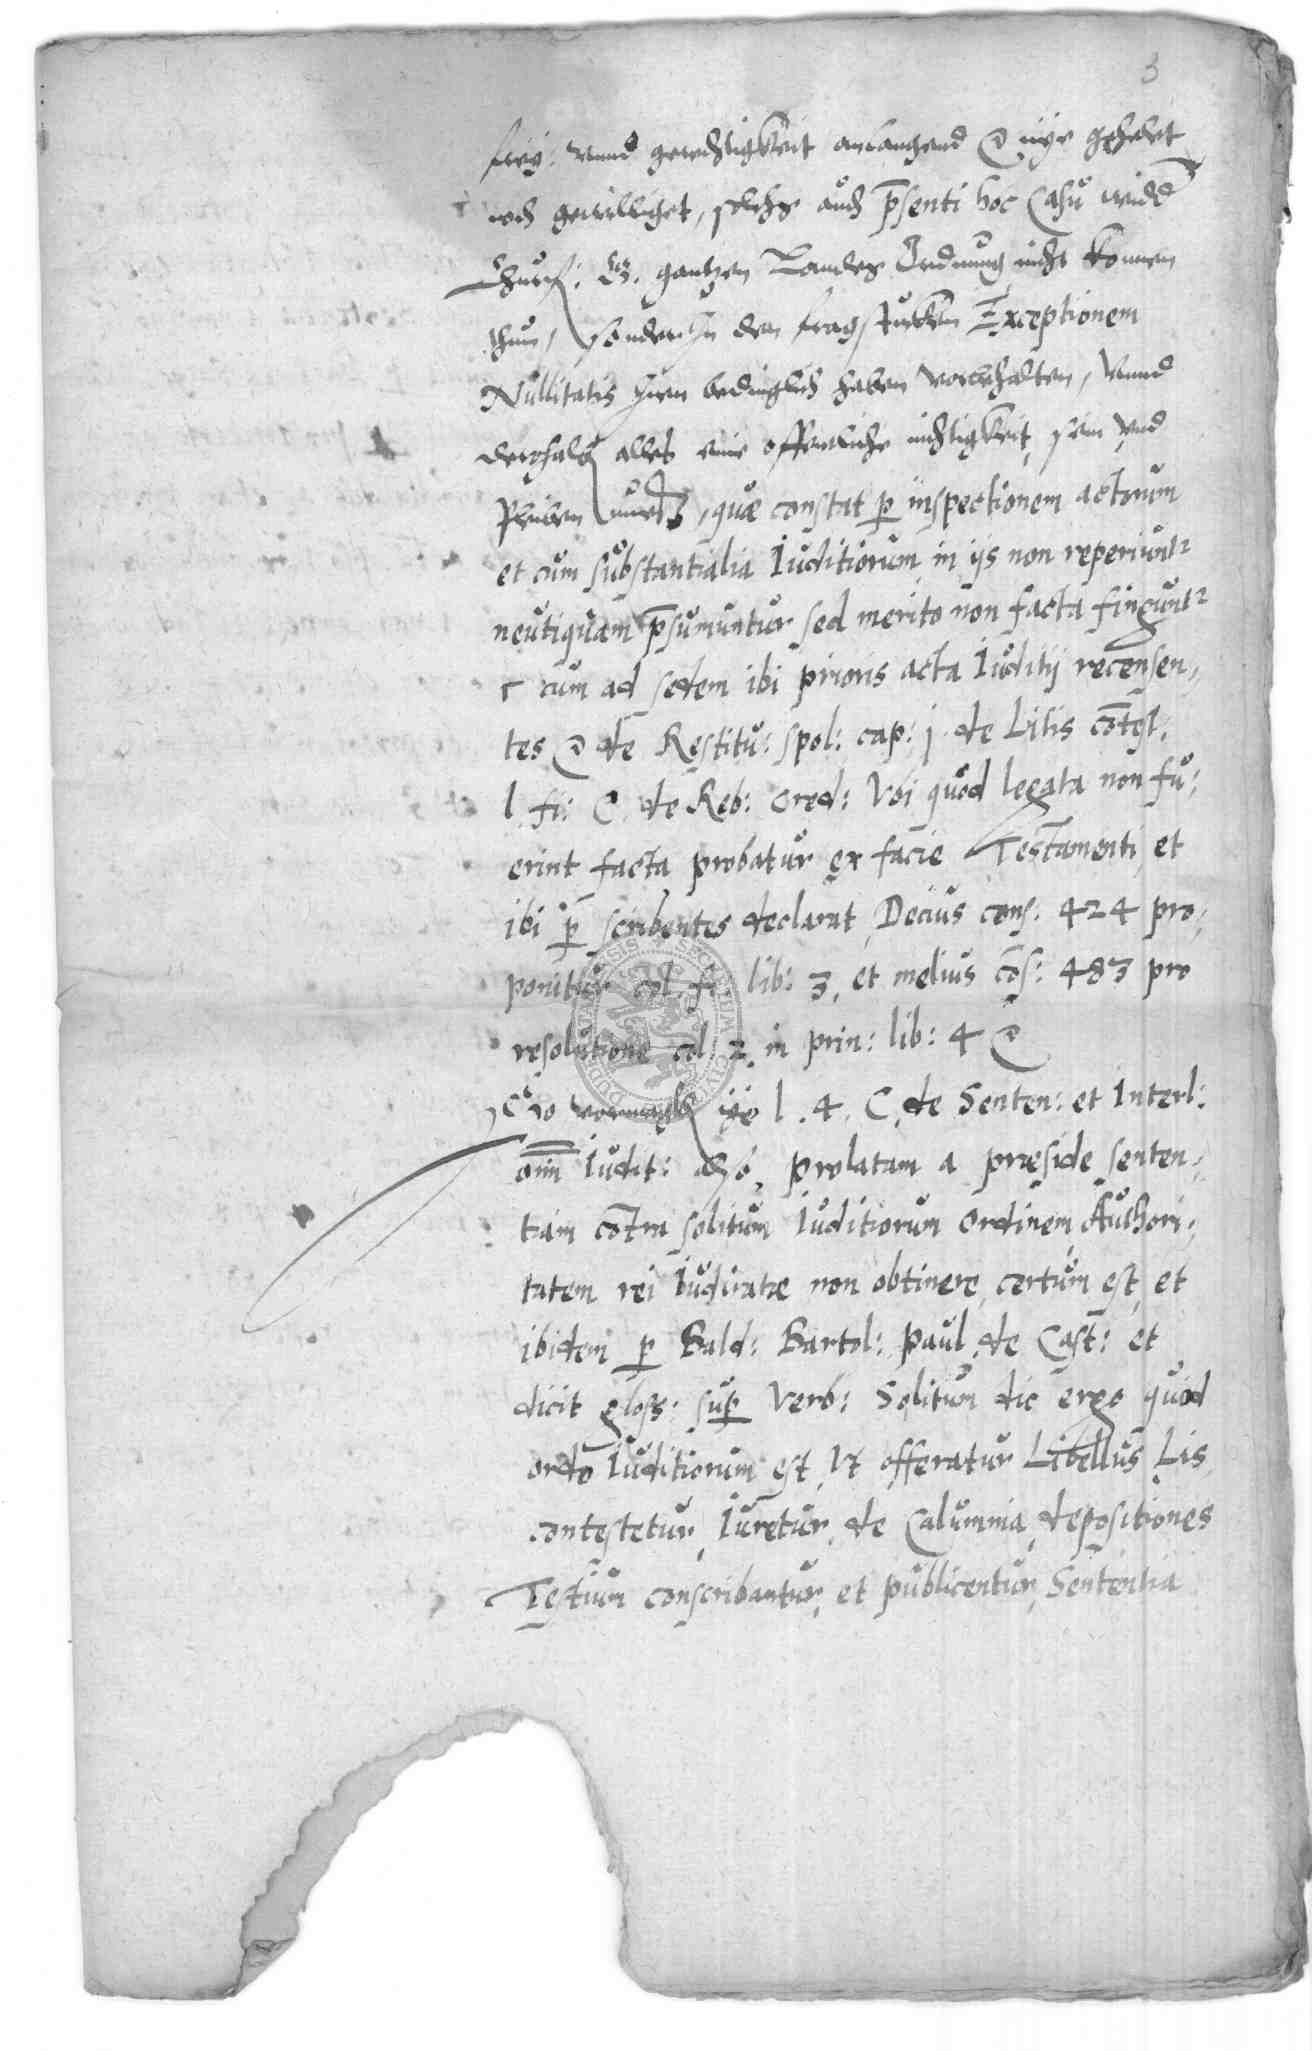 3
freÿ: vnnd gerechtigkeit anlangend @ nÿe gehöret
noch gewilliget, solchs auch p̄senti hoc Casu widd
Churf: G. gantzen Landes Ordnung nicht können
thun, sondern In den fragstucken Exceptionem
Nullitatis Inen bedinglich haben vorbehalten, Vnnd
derohalb alles eine offentliche nichtigkeit, sein vnd
bleiben wurd, quæ constat p inspectionem actorum
et cum substantialia Iuditiorum in ijs non reperiunt
neutiquam p̄sumuntur sed merito non facta fingunt
r cum ad sedem ibi prioris acta Iuditij recensen,
tes @ de Restitu: spol: cap: j. de Litis cōtest.
l. fi: C. de Reb: Cred: Vbi quod legata non fu:
erint facta probatur ex facie Testamenti, et
ibi p scribentes declarat, Decius cons. 424 pro,
ponitur col. fi. lib: 3, et melius cōs: 483 pro
resolutione col. 2. in prin: lib: 4 @
So vormagk ÿe l. 4. C. de Senten: et Interl:
om̄ Iudit: also, prolatam a præside senten,
tiam cōtra solitum Iuditiorum Ordinem, Authori,
tatem rei Iudicatæ non obtinere, certum est, et
ibidem p Bald: Bartol: Paul. de Cast: et
dicit gloss: sup Verb: Solitum dic ergo quod
ordo Iuditiorum est, Vt offeratur Libellus, Lis
contestetur, Iuretur, de Calumnia, depositiones
Testium conscribantur, et publicentur, Sententia